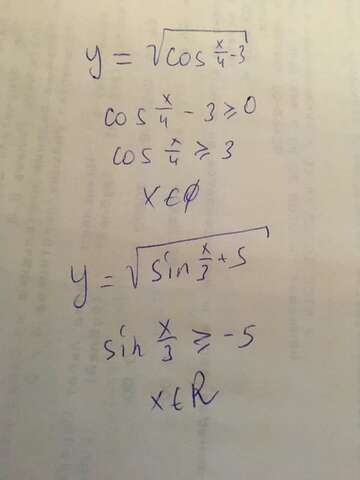 y = √(cos x/4 - 3)
cos x/4 - 3 ≥ 0
cos x/4 ≥ 3
x ∈ ∅
y = √(sin x/3 + 5)
sin x/3 ≥ -5
x ∈ R